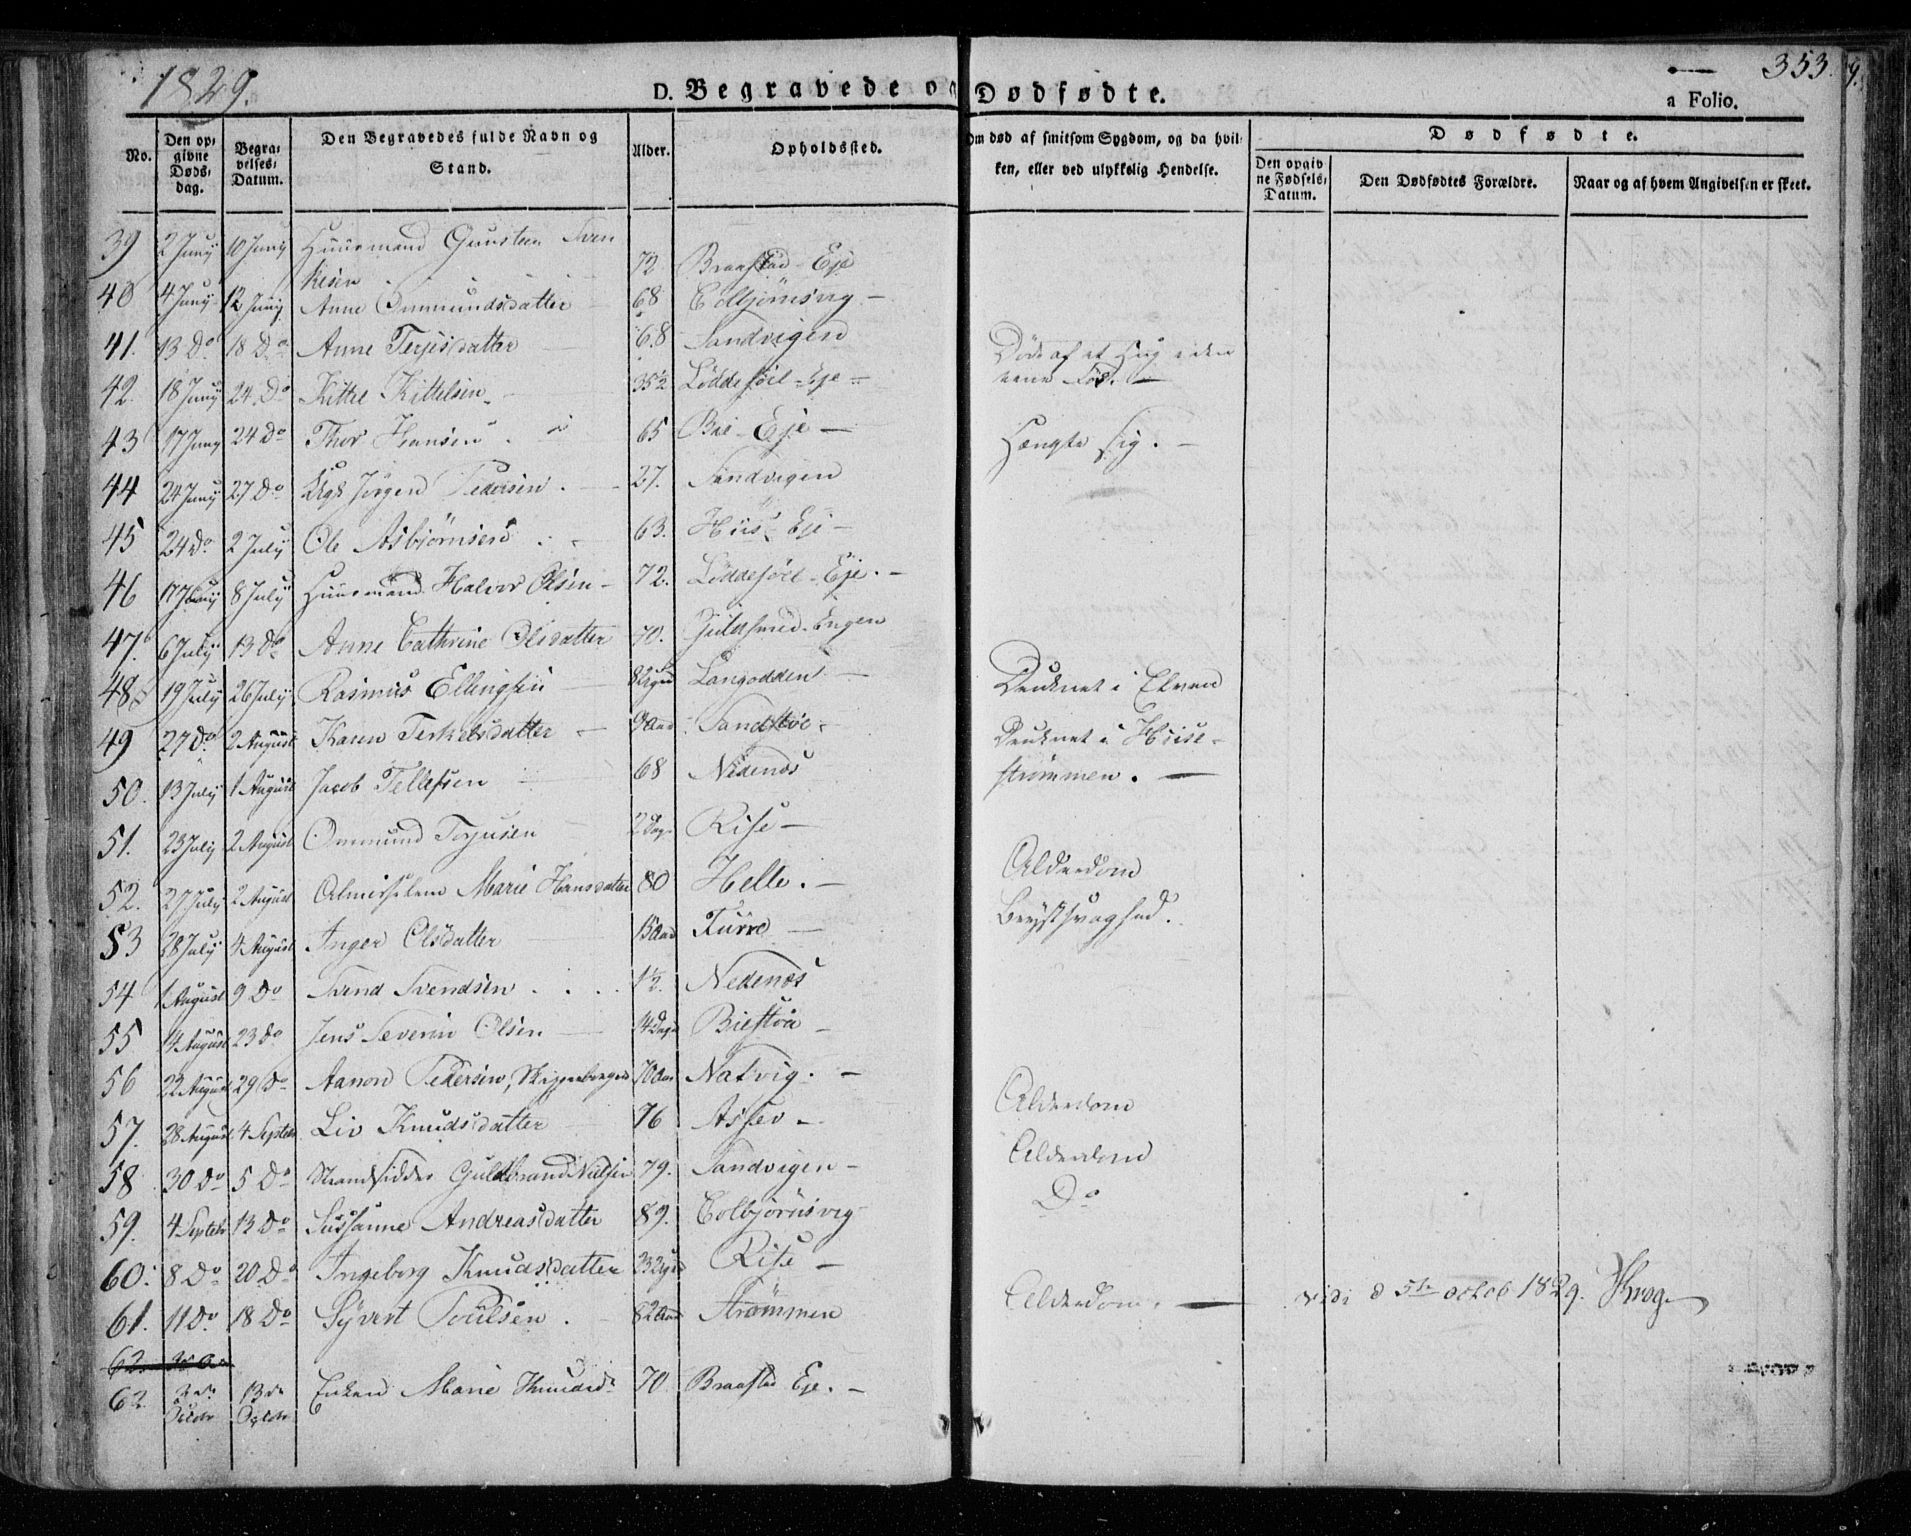 1829. D. Begravede og Dødfødte. 353.
a Folio.
No. Den opgivne Dødsdag. Begravelses-Datum. Den Begravedes fulde Navn og Stand. Alder. Opholdssted. Om død af smitsom Sygdom, og da hvilken, eller ved ulykkelig Hendelse. Dødfødte.
Den opgivne Fødsels-Datum. Den Dødfødtes Forældre. Naar og af hvem Angivelsen er skeet.
39 2 Juny 10 Juny Huusmand Gunsten Svenkesen 72 Braastad Eje
40 4 Juny 12 Juny Anne Ommundsdatter 68 Colbjörnsvig
41. 13 Do 18 Do Anne Terjesdatter 68 Sandvigen
42. 18 Juny 24 Do Kittel Kittelsen 35½ Löddesöel Eje Döde af et Hug i den ene Fod.
43 17 Juny 24 Do Thor Hansen 65 Bie Eje Hængte sig.
44 24 Juny 27 Do Jörgen Pedersen 27. Sandvigen
45 24 Do 2 July Ole Asbjörnsen 63. Hiis Eje
46 17 Juny 8 July Huusmand Halvor Olsen 72. Löddesöel Eje.
47. 6 July 13 Do Anne Cathrine Olsdatter 70. Guldsmed Engen
48 19 July 26 July Rasmus Ellingsen Langodden Druknet i Elven
49 27 Do 2 August Karen Terkelsdatter 9 Aar Sandstöe Druknet i Hiisestrømmen.
50. 13 July 1 August Jacob Tellefsen 68 Nedenæs
51. 23 July 2 August Ommund Torjusen 2 Dage Rise
52. 27 July 2 August Almisselem Marie Hansdatter 80 Helle. Alderdom
53 28 July 4 August Inger Olsdatter 15 Aar Furre Brystsvaghed.
54 1 August 9 Do Svend Svendsen 1½ Nedenæs
55 14 August 23 Do Jens Severin Olsen 14 Dage Biestöa
56 22 August 29 Do Aanon Pedersen, 70 Aar Natvig.
57. 28 August 4 Septebr Liv Knudsdatter 76 Assev Alderdom
58 30 Do 5 Do Strandsidder Guldbrand Nielsen 79. Sandvigen Alderdom
59. 4 Septebr 12 Do Sussanne Andreasdatter 89. Colbjörnsvig Do
60. 8 Do 20 Do Ingeborg Knudsdatter Rise
61. 11 Do 18 Do Syvert Poulsen 82 Aar Strømmen Alderdom. vidi d 5te octob 1829. Krog
62.
62 13de Octbr Marie Knudsd. 70 Braastad Eje.